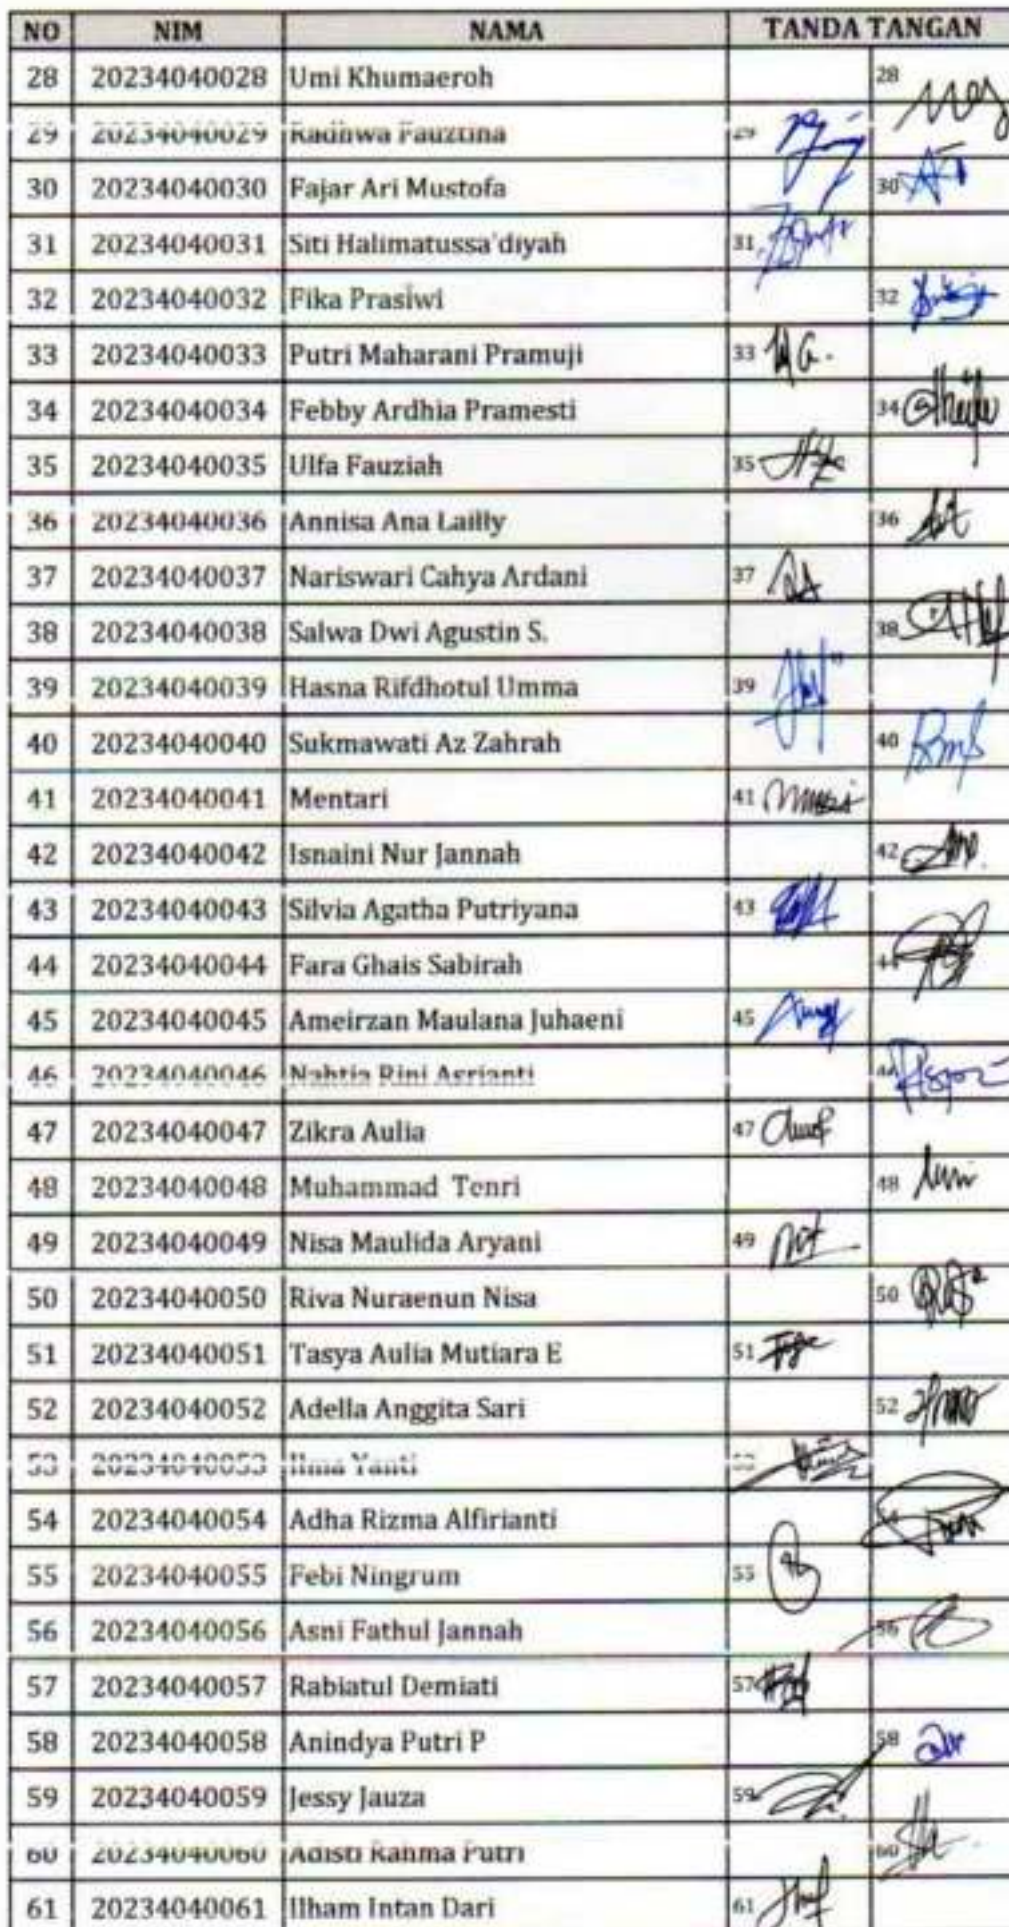 NO NIM NAMA TANDA TANGAN
28 20234040028 Umi Khumaeroh 28
29 20234040029 Radhwa Fauztina 29
30 20234040030 Fajar Ari Mustofa 30
31 20234040031 Siti Halimatussa'diyah 31
32 20234040032 Fika Prasiwi 32
33 20234040033 Putri Maharani Pramuji 33
34 20234040034 Febby Ardhia Pramesti 34
35 20234040035 Ulfa Fauziah 35
36 20234040036 Annisa Ana Lailly 36
37 20234040037 Nariswari Cahya Ardani 37
38 20234040038 Salwa Dwi Agustin S. 38
39 20234040039 Hasna Rifdhotul Umma 39
40 20234040040 Sukmawati Az Zahrah 40
41 20234040041 Mentari 41
42 20234040042 Isnaini Nur Jannah 42
43 20234040043 Silvia Agatha Putriyana 43
44 20234040044 Fara Ghais Sabirah 44
45 20234040045 Ameirzan Maulana Juhaeni 45
46 20234040046 Nahtia Rini Asrianti
47 20234040047 Zikra Aulia 47
48 20234040048 Muhammad Tenri 48
49 20234040049 Nisa Maulida Aryani 49
50 20234040050 Riva Nuraenun Nisa 50
51 20234040051 Tasya Aulia Mutiara E 51
52 20234040052 Adella Anggita Sari 52
53 20234040053 Ilma Yanti 53
54 20234040054 Adha Rizma Alfirianti 54
55 20234040055 Febi Ningrum 55
56 20234040056 Asni Fathul Jannah 56
57 20234040057 Rabiatul Demiati 57
58 20234040058 Anindya Putri P 58
59 20234040059 Jessy Jauza 59
60 20234040060 Adisti Rahma Putri 60
61 20234040061 Ilham Intan Dari 61